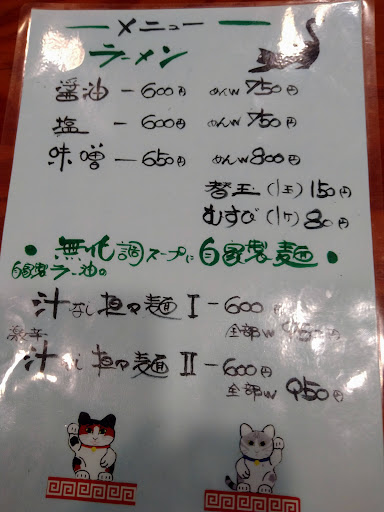 メニュー
ラーメン
醤油 — 600円 めんW 750円
塩 — 600円 めんW 750円
味噌 — 650円 めんW 800円
替玉 (1玉) 150円
むすび (1ケ) 80円
• 無化調スープに自家製麺 •
自家製ラー油の
汁なし担々麺 I — 600
全部W 950円
激辛
汁なし担々麺 II — 600円
全部W 950円